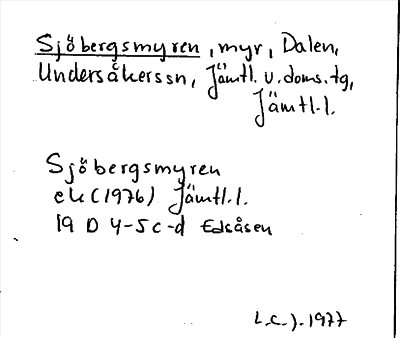 Sjöbergsmyren, myr, Dalen,
Undersåkerssn, Jämtl. v. doms. tg,
Jämtl. l.
Sjöbergsmyren
ek (1976) Jämtl. l.
19 D 4-5 c-d Edsåsen
L.C.J. 1977